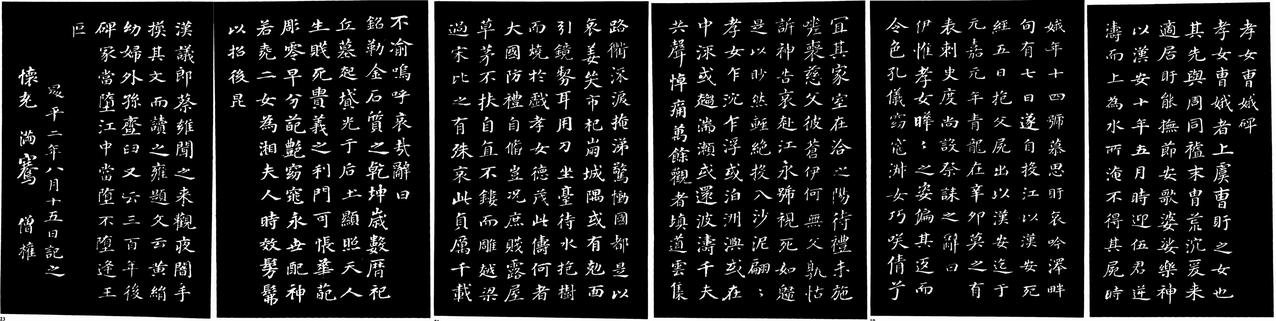 孝女曹娥碑
孝女曹娥者上虞曹盱之女也
其先與周同祖末胄荒沉爰来
適居盱能撫節安歌婆娑樂神
以漢安十年五月時迎伍君逆
濤而上為水所淹不得其屍時
娥年十四號慕思盱哀吟澤畔
旬有七日遂自投江以漢安死
經五日抱父屍出以漢安迄于
元嘉元年青龍在辛卯莫之有
表刺史度尚設祭誄之辭曰
伊惟孝女曄〻之姿偏其返而
令色孔儀窈窕淑女巧咲倩兮
宜其家室在洽之陽待禮未施
嗟喪慈父彼蒼伊何無父孰怙
訴神告哀赴江永號視死如歸
是以眇然輕絶投入沙泥翩〻
孝女乍沉乍浮或泊洲渚或在
中流或趨湍瀨或還波濤千夫
共聲悼痛萬餘觀者填道雲集
路衢泣淚掩涕驚慟國都是以
哀姜哭市杞崩城隅或有剋面
引鏡剺耳用刀坐臺待水抱樹
而燒於戲孝女德茂此儔何者
大國防禮自脩豈況庶賤露屋
草茅不扶自直不鏤而雕越梁
過宋比之有殊哀此貞厲千載
不渝嗚呼哀哉辭曰
銘勒金石質之乾坤歲數曆祀
丘墓起墳光于后土顯照天人
生賤死貴義之利門何悵華葩
彫零早分葩艷窈窕永世配神
若堯二女為湘夫人時效髣髴
以招後昆
漢議郎蔡雍聞之来觀夜闇手
摸其文而讀之雍題文云黄絹
幼婦外孫齏臼又云三百年後
碑冢當墮江中當墮不墮逢王
叵
昇平二年八月十五日記之
懷充 滿騫 僧權